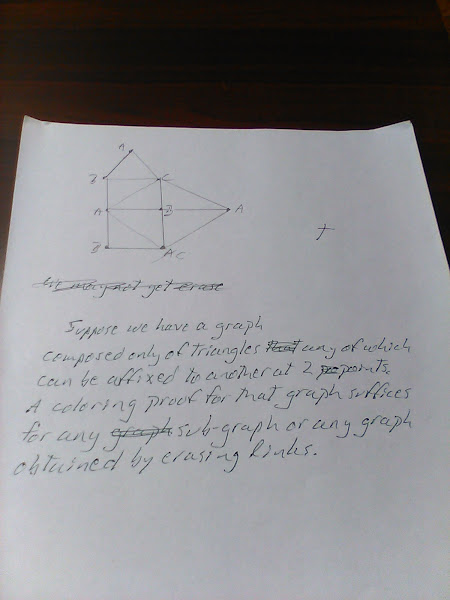 A
B C
A B A
B A C
Suppose we have a graph
composed only of triangles that any of which
can be affixed to another at 2 points.
A coloring proof for that graph suffices
for any graph sub-graph or any graph
obtained by erasing links.